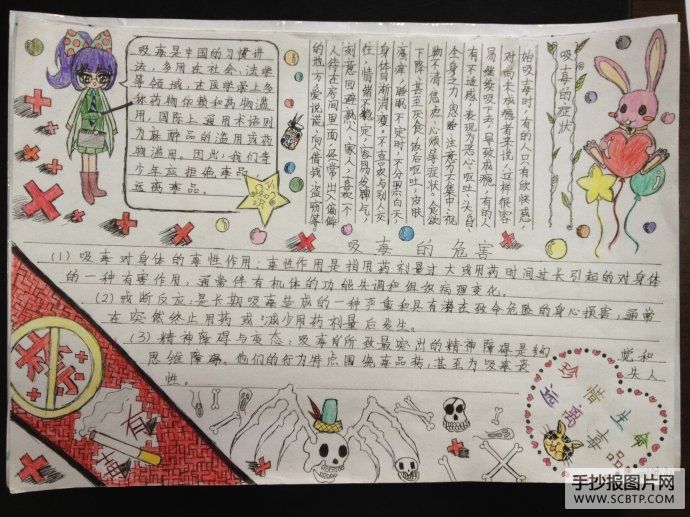 吸毒是中国的习惯讲
法,多用在社会、法学
等领域,在医学上多
称药物依赖和药物滥
用,国际上通用术语则
为麻醉品的滥用或药
物滥用。因此,我们青
少年应拒绝毒品,
远离毒品。
吸毒的症状
始吸士毒时,有的人只有欣快感,
对尚未成瘾者来说,这样很容
易继续吸下去,导致成瘾,有的人
有不适感,表现为恶心、呕吐、头昏、
全身乏力、思睡、注意力不集中、视
物不清、焦虑、心烦等症状,食欲
下降,甚至厌食,饭后呕吐,皮肤
瘙痒,睡眠不定时,不分黑白天,
身体日渐消瘦。不喜欢与别人交
往,情绪不稳定,容易发脾气,
刻意回避熟人、家人,喜欢一个
人待在房间里面,经常出入偏僻
的地方,爱说谎,向人借钱,盗窃等。
吸毒的危害
(1) 吸毒对身体的毒性作用:毒性作用是指用药剂量过大或用药时间过长引起的对身体
的一种有害作用,通常伴有机体的功能失调和组织病理变化。
(2) 戒断反应:是长期吸毒造成的一种严重和具有潜在致命危险的身心损害,通常
在突然终止用药或减少用药剂量后发生。
(3) 精神障碍与变态:吸毒所致最突出的精神障碍是幻觉和
思维障碍。他们的行为特点围绕毒品转,甚至为吸毒丧失人
性。
禁
有毒
珍惜生命
远离毒品
手抄报图片网
WWW.SCBTP.COM